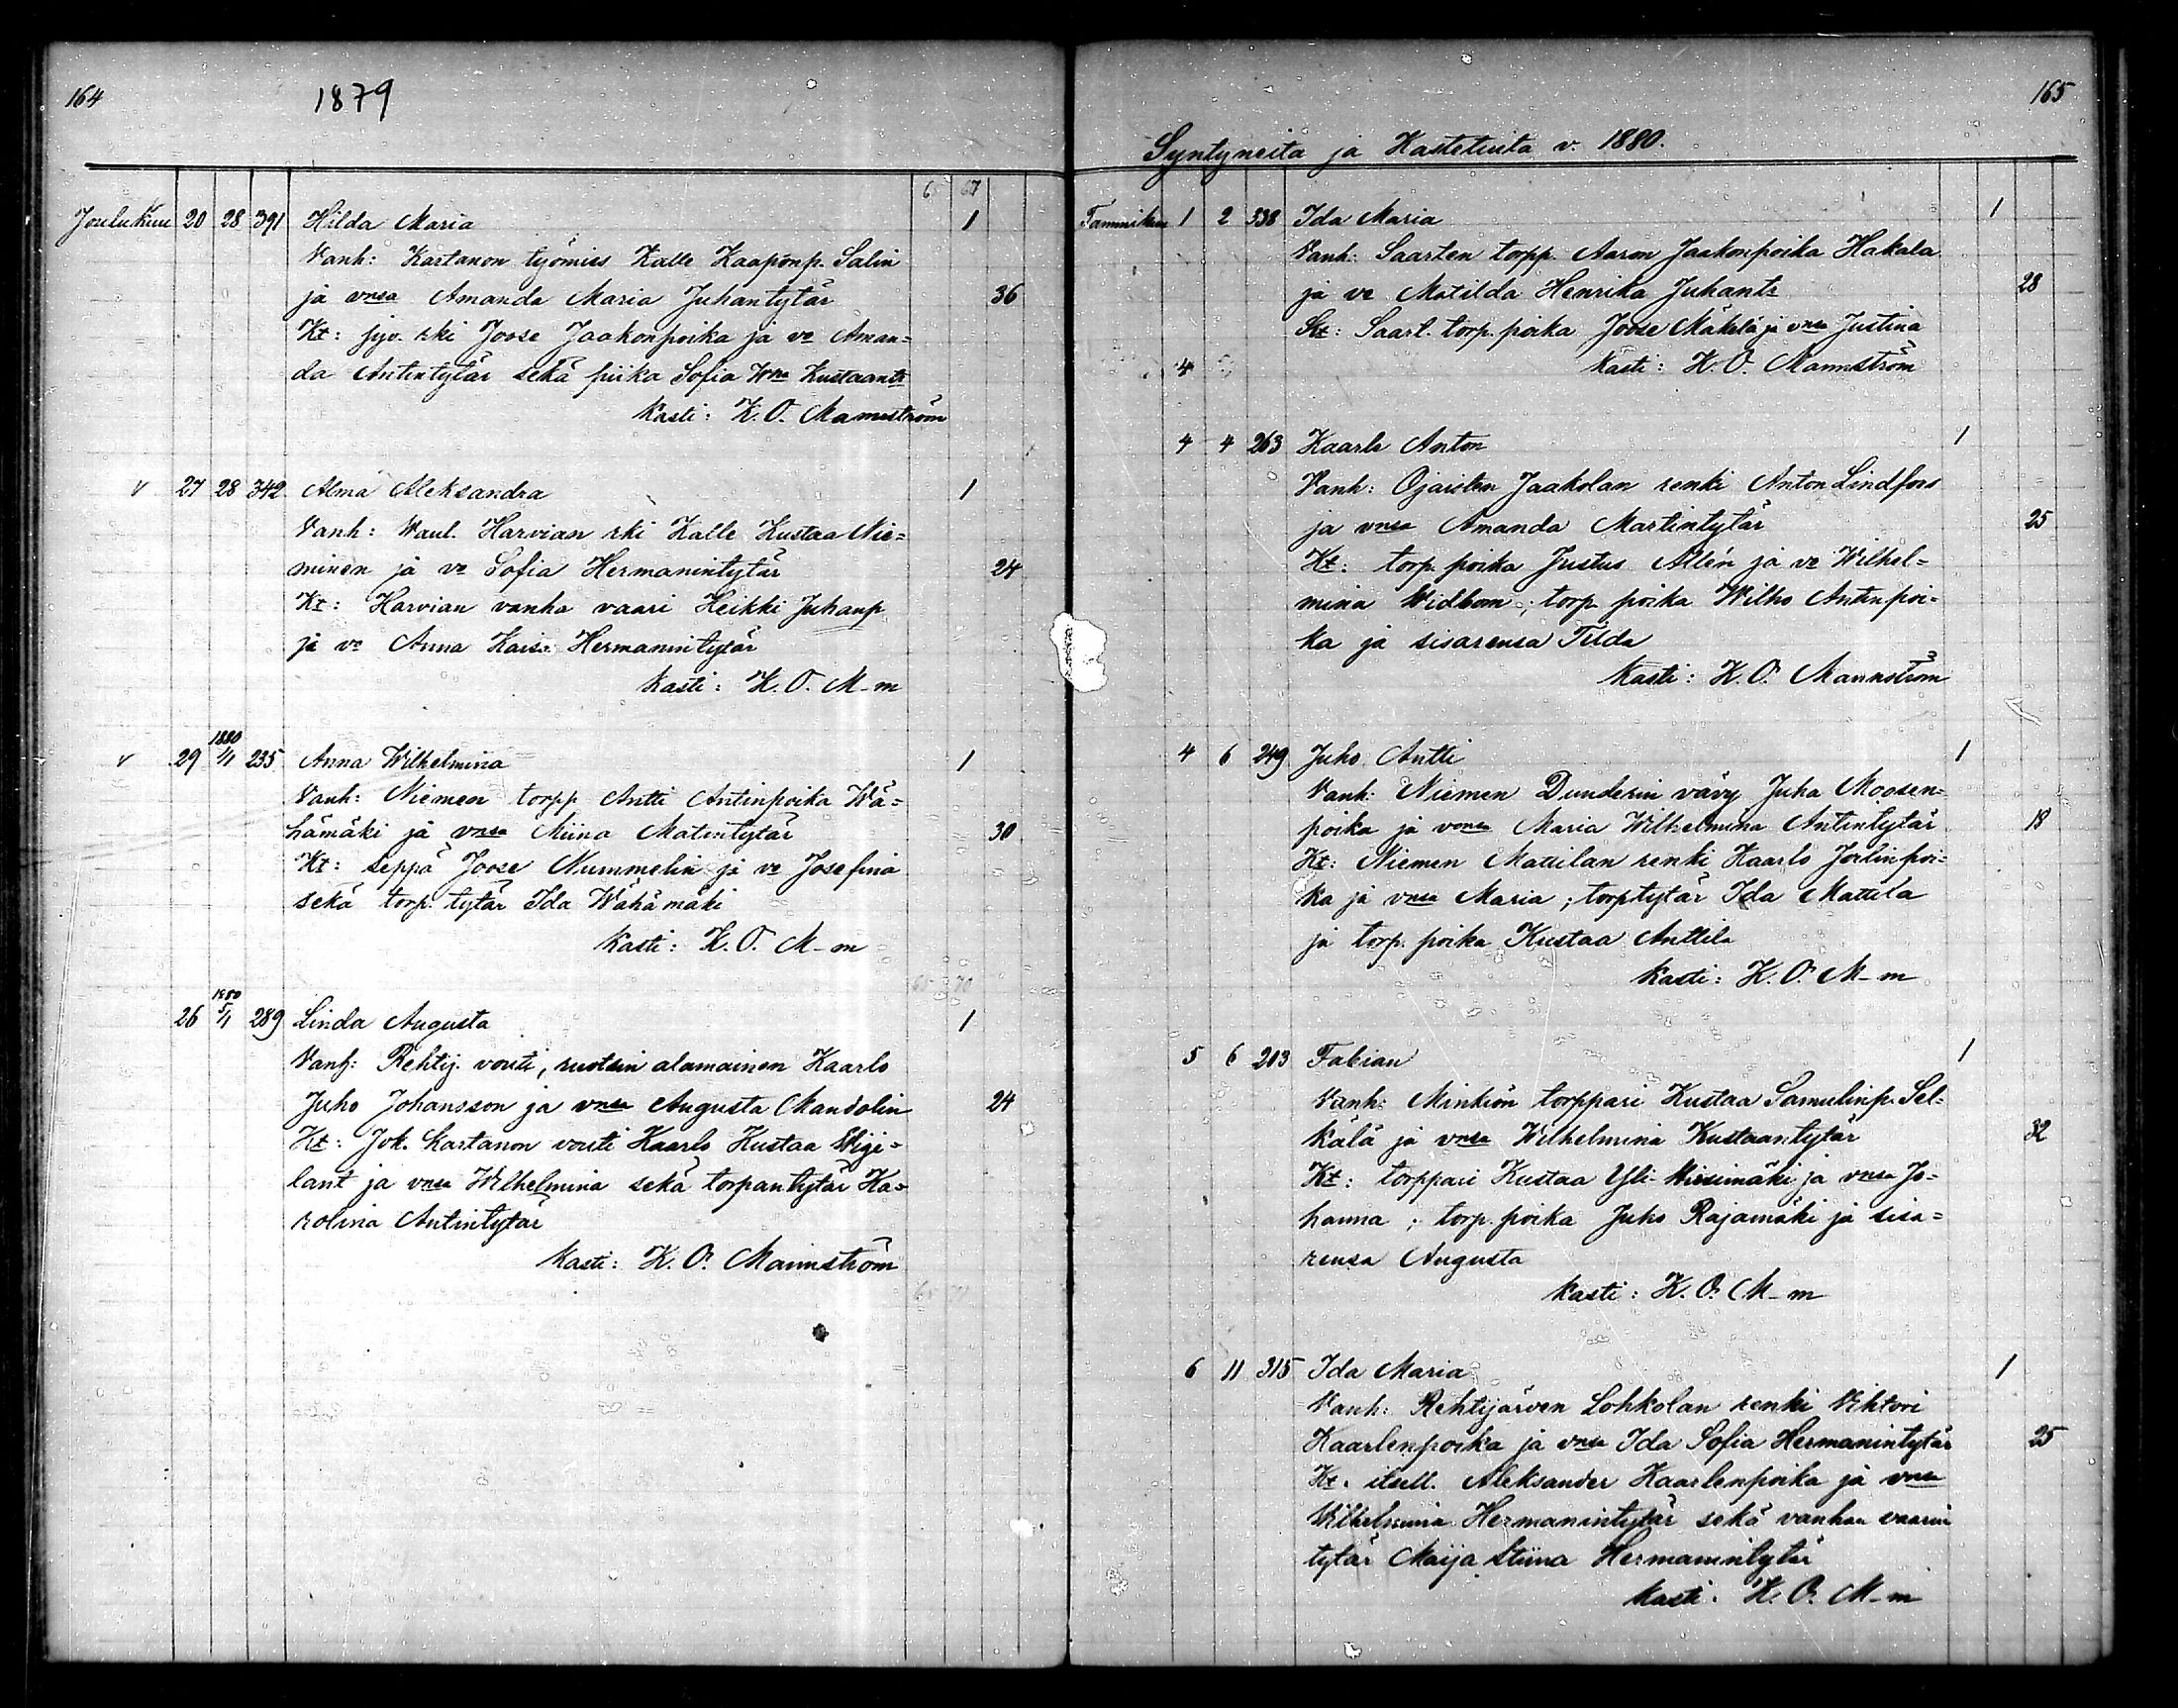 164
1879
65 67
Joulukuu 20 28 391 Hilda Maria 1
Vanh: Kartanon työmies Kalle Kaaponp. Salin
ja vnsa Amanda Maria Juhantytär 36
Kt: jyv. rki Joose Jaakonpoika ja vo Aman=
da Antintytär sekä piika Sofia Wna Kustaantr
Kasti: K. O. Mannström
v 27 28 342 Alma Aleksandra 1
Vanh: Waul. Harvian rki Kalle Kustaa Nie=
minen ja vo Sofia Hermanintytär 24
Kt: Harvian vanha vaari Heikki Juhanp
ja vo Anna Kaisa Hermanintytär
Kasti: K. O. M-m
v 29 1880 1/1 235 Anna Wilhelmina 1
Vanh: Niemen torpp Antti Antinpoika Wä=
hämäki ja vnsa Miina Matintytär 30
Kt: seppä Joose Nummelin ja vo Josefina
sekä torp. tytär Ida Wähämäki
Kasti: K. O. M-m
65 70
26 1880 5/1 289 Linda Augusta 1
Vanh: Rehtij. vouti, ruotsin alamainen Kaarlo
Juho Johansson ja vnsa Augusta Mandolin 24
Kt: Jok. Kartanon vouti Kaarlo Kustaa Wigi=
lant ja vnsa Wilhelmina sekä torpantytär Ka=
rolina Antintytär
Kasti: K. O. Mannström
165
Syntyneitä ja Kastetuita v. 1880.
Tammikuu 1 2 338 Ida Maria 1
Vanh: Saarten torpp. Aaron Jaakonpoika Hakala
ja vo Matilda Henrika Juhantr 28
Kt: Saart. torp. poika Joose Mäkelä ja vnsa Justina
4 Kasti: K. O. Mannström
4 4 263 Kaarlo Anton 1
Vanh: Ojaisten Jaakolan renki Anton Lindfors
ja vnsa Amanda Martintytär 25
Kt: torp. poika Justus Allén ja vo Wilhel=
mina Widbom; torp. poika Wilho Antinpoi=
ka ja sisarensa Tilda
Kasti: K. O. Mannström
4 6 249 Juho Antti 1
Vanh: Niemen Dunderin vävy Juha Moosen=
poika ja vonsa Maria Wilhelmina Antintytär 19
Kt: Niemen Mattilan renki Kaarlo Joelinpoi=
ka ja vnsa Maria; torp tytär Ida Mattila
ja torp. poika Kustaa Anttila
Kasti: K. O. M-m
5 6 203 Fabian 1
Vanh: Minkiön torppari Kustaa Samulinp. Sel=
kälä ja vnsa Wilhelmina Kustaantytär 32
Kt: torppari Kustaa Yli-Mesimäki ja vnsa Jo=
hanna; torp. poika Juho Rajamäki ja sisa=
rensa Augusta
Kasti: K. O. M-m
6 11 315 Ida Maria 1
Vanh: Rehtijärven Lohkolan renki Vihtori
Kaarlenpoika ja vnsa Ida Sofia Hermanintytär 25
Kt. itsell. Aleksander Kaarlenpoika ja vnsa
Wilhelmina Hermanintytär sekä vanhan vaarin
tytär Maija Stiina Hermanintytär
Kasti. K. O. M-m